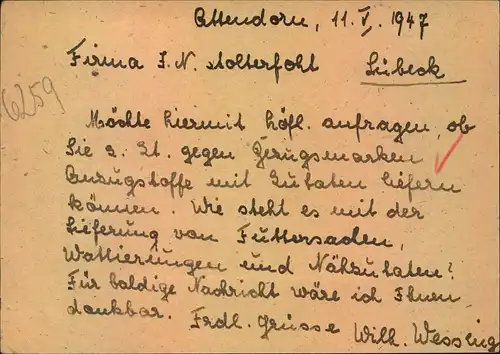 Attendorn, 11. V. 1947
Firma J. N. Stolterfoht Lübeck
6259
Möchte hiermit höfl. anfragen, ob
Sie z. Zt. gegen Bezugsmarken
Anzugstoffe mit Zutaten liefern
können. Wie steht es mit der
Lieferung von Futtersachen,
Wattierungen und Nähzutaten?
Für baldige Nachricht wäre ich Ihnen
dankbar. Frdl. Grüsse Wilh. Wessing